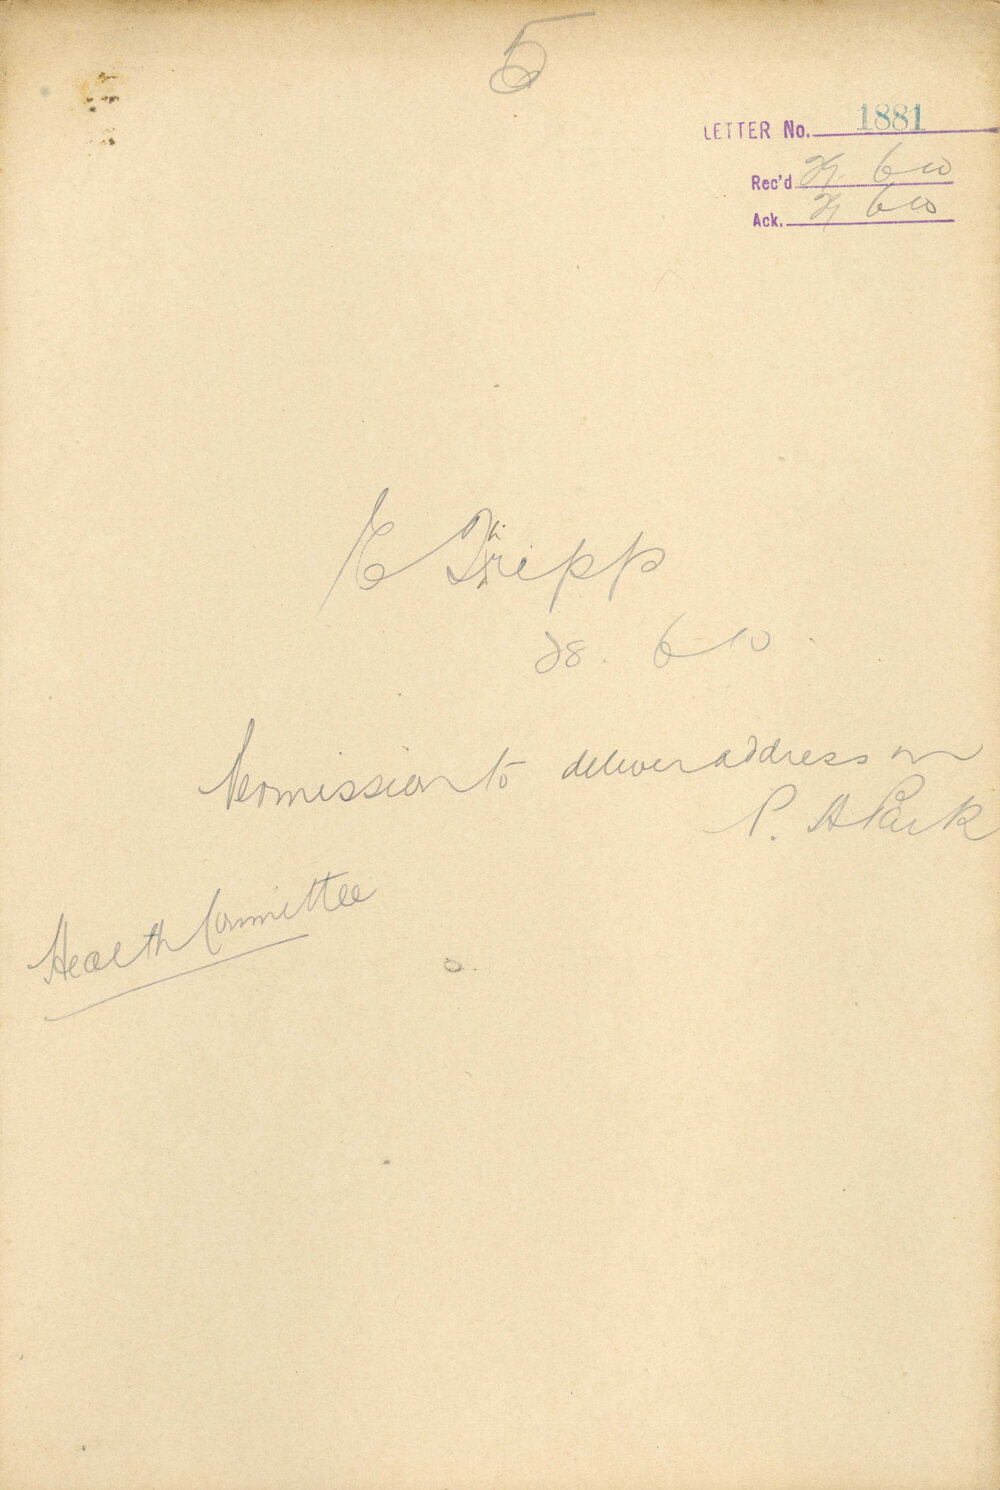 5
LETTER No. 1881
Rec'd 29. 6 10
Ack. 29 6 10
E Tripp
28. 6 10.
Permission to deliver address on
P. A Park
Health Committee